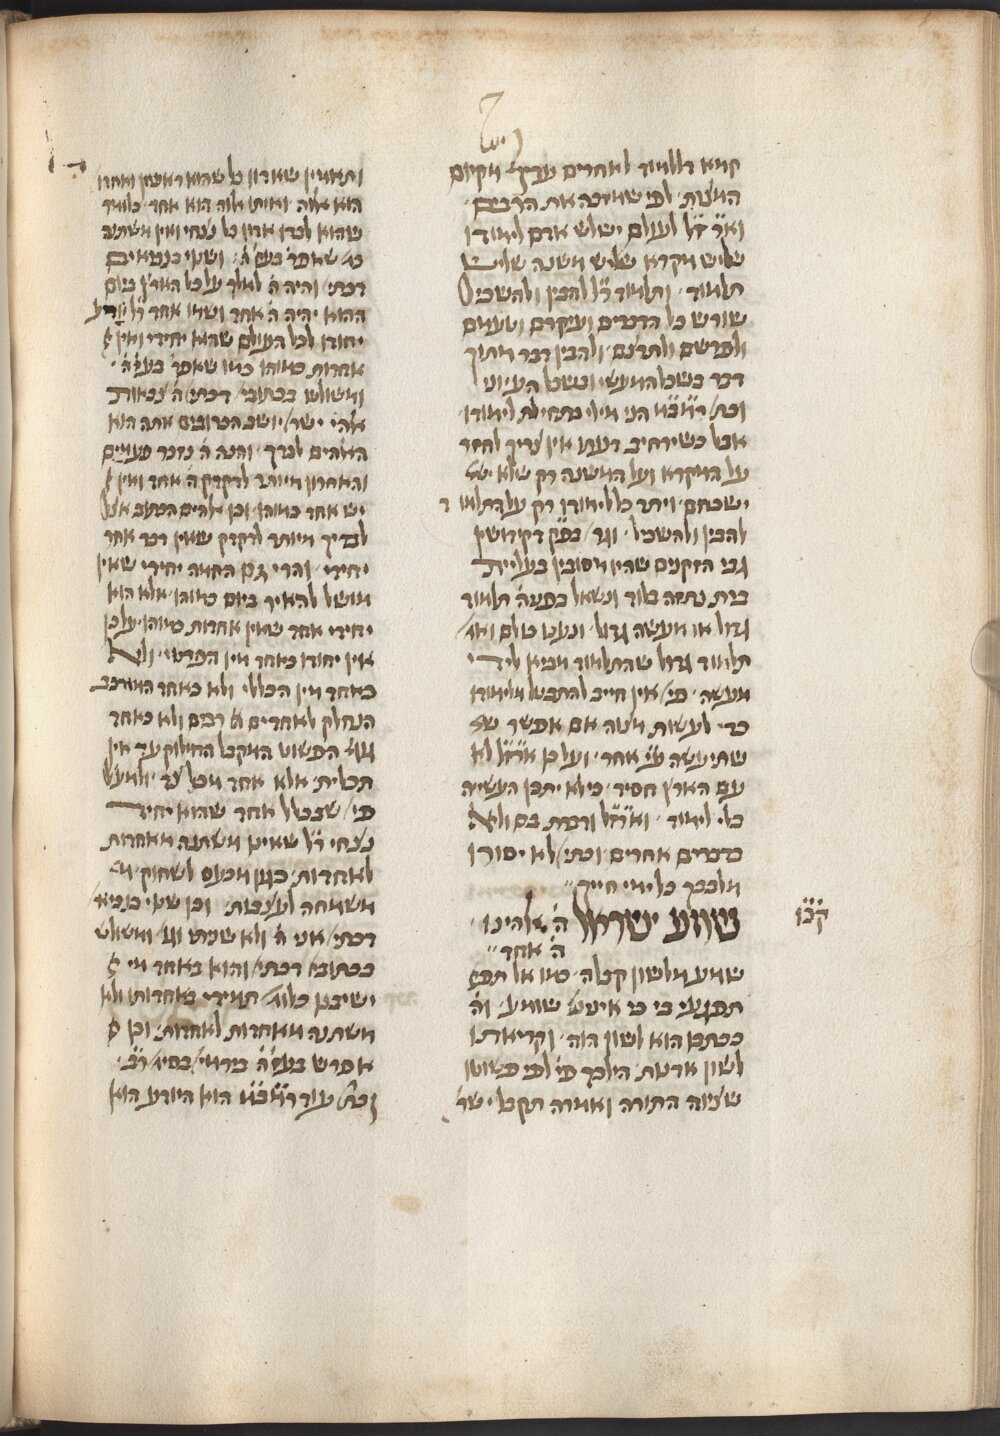 קמא דללמוד לאחרים עדיף מקיום
המצות לפי שמזכה את הרבים
ואר׳ ז׳ל לעולם ישלש אדם לימודו
שליש מקרא שליש משנה שליש
תלמוד ותלמוד ר׳ל להבין ולהשכיל
שורש כל הדברים ועיקרם וטעמם
ולפרשם ולתרגם ולהבין דבר מתוך
דבר בשכל המעשי ובשכל העיוני
וכת׳ רמב״ם הני מילי בתחילת לימודו
אבל כשירחיב דעתו אין צריך לחזר
על המקרא ועל המשנה רק שלא
ישכחם ויהר כל לימודו רק על התלמוד
להבין ולהשכיל בפ׳ק דקידושין
גבי הזקנים שהיו מסובין בעליית
בית נתזה בלוד ונשאל בפניה תלמוד
גדול או מעשה גדול ונענו כולם ואמ׳
תלמוד גדול שהתלמוד מביא לידי
מעשה פי׳ אין חייב להתבטל מלימודו
כדי לעשות מצוה אם אפשר
שתיעשה ע״י אחר ועל כן ארז׳ל לא
עם הארץ חסיד כי לא יתכן העשיה
בלי לימוד וארז׳ל ודברת בם ולא
בדברים אחרים וכתי׳ לא יסורו
מלבבך כל ימי חייך
שמע ישראל ה׳ אלהינו
ה׳ אחד
קכו
שמע מלשון קבלה כמו אל
תפגעי בי כי איננו שומע וה׳
ככתבו הוא לשון הוה וקריאתו
לשון אדנות הילכך פי׳ לפי פשוטו
שצוה התורה ואמרה תקבל ישר׳
ותאמין שאדון כל שהוא ראשון ואחרון
הוא אלוה ואותו אלוה הוא אחד כלומר
שהוא לבדו אדון כל נצחי ואין משתנה
כמו שאפר׳ בע״ה ושני בנביאים
דכתי׳ והיה ה׳ למלך על כל הארץ ביום
ההוא יהיה ה׳ אחד ושמו אחד ר׳ל יודע
יחודו לכל העולם שהוא יחידי ואין
אחדות כמוהו כמו שאפר׳ בע״ה
ומשולש בכתובי׳ דכתי׳ ה׳ צבאות
אלהי ישר׳ יושב הכרובים אתה הוא
האלהים לבדך והנה ה׳ נזכר פעמים
והאחרון מיותר לדקדק ה׳ אחד ואין
יש אחד כמוהו וכן אלהים הכתוב אצל
לבדיך מיותר לדקדק שאין דבר אחר
יחידי והרי גם החמה יחידי שאין
מושל להאיר ביום כמוהו אלא הוא
יחידי אחד שאין אחדות כמוהו על כן
אין יחודו כאחד מין הפרטי ולא
כאחד מין הכללי ולא כאחד המורכב
הנחלק לאחדים רבים ולא כאחד
הפשוט המקבל החילוק עד אין
תכלית אלא אחד מכל צד
פי׳ שבכלל אחד שהוא יחיד
נצחי ר׳ל שאינו משתנה מאחדות
לאחדות כגון מכעס לשחוק
משמחה לעצבות וכן שני בנביא׳
דכתי׳ אני ה׳ לא שניתי ומשולש
בכתובי׳ דכתי׳ והוא באחד ומי
ישיבנו כלומ׳ תמידי באחדותו ולא
משתנה מאחדות לאחדות וכן
אפרש בע״ה
וכת׳ עוד רמב״ם הוא היודע הוא